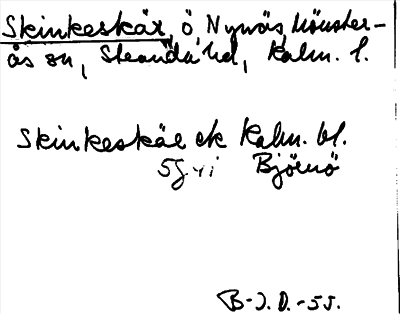 Skinkeskär, ö Nynäs, Mönster-
ås sn, Stranda hd, Kalm. l.
Skinkeskär ek Kalm. bl.
5g vi Björnö
B-J.D.-55.